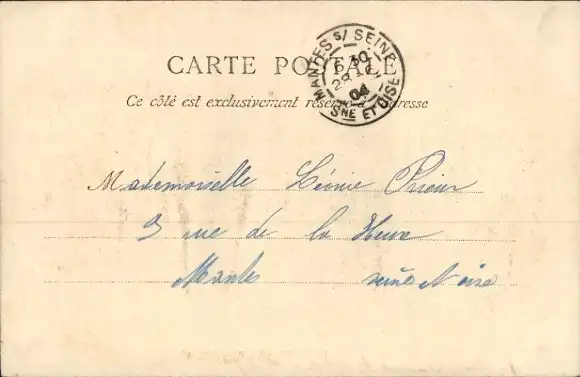 CARTE POSTALE
MANTES S/ SEINE
6 30
28
04
SNE ET OISE
Ce côté est exclusivement réservé à l'adresse
Mademoiselle Léonie Prieur
3 rue de la Heuse
Mantes Seine et Oise